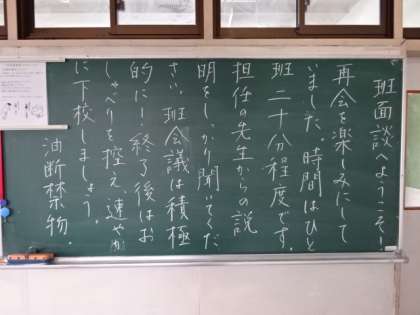 班面談へようこそ！
再会を楽しみにして
いました。時間はひと
班二十分程度です。
担任の先生からの説
明をしっかり聞いてくだ
さい。班会議は積極
的に！終了後はお
しゃべりを控え、速やか
に下校しましょう。
油断禁物。